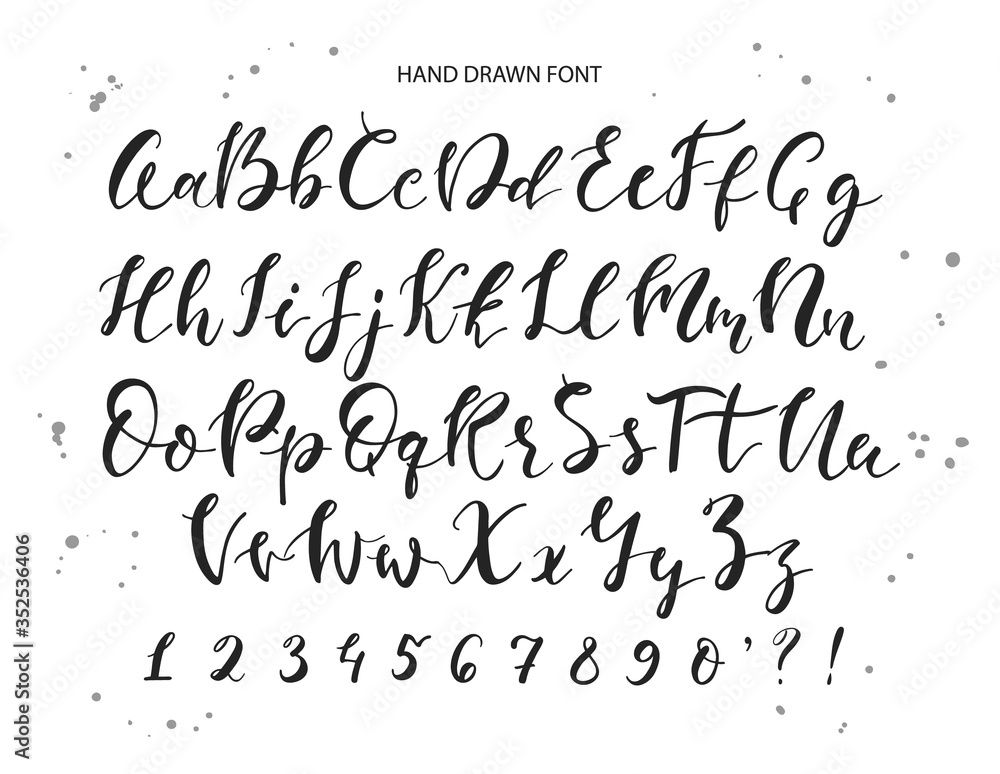 HAND DRAWN FONT
AaBbCcDdEeFfGg
HhIiJjKkLlMmNn
OoPpQqRrSsTtUu
VvWwXxYyZz
1234567890'?!
Adobe Stock | #352536406